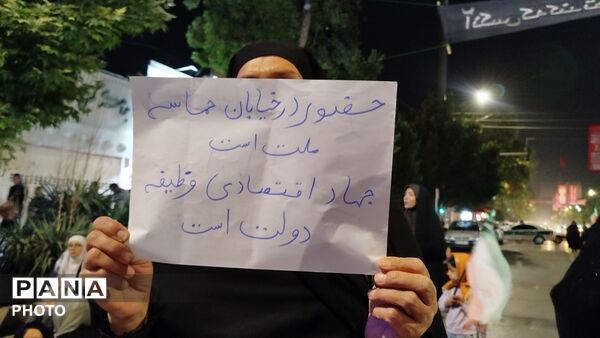 حضور در خیابان حماسه
ملت است
جهاد اقتصادی وظیفه
دولت است
PANA
PHOTO